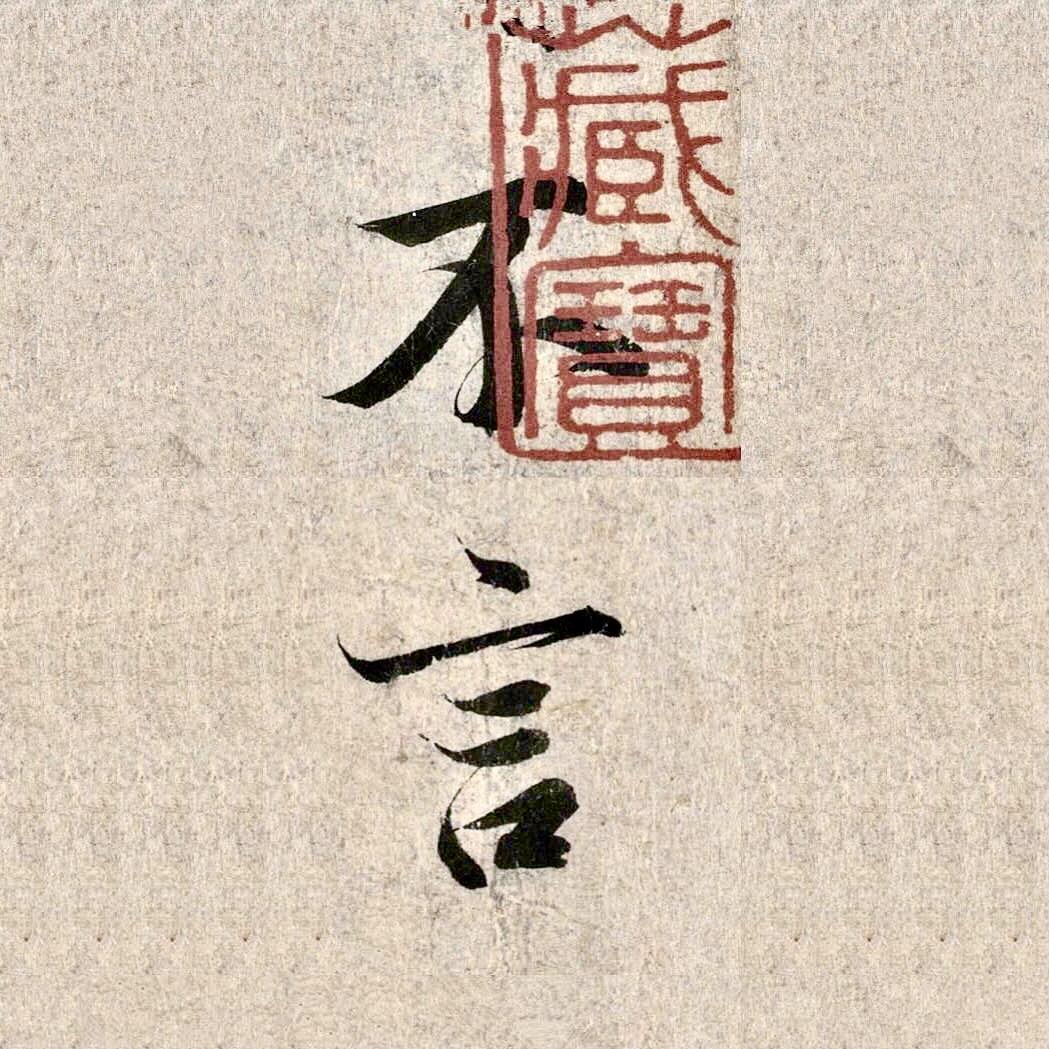 不言
藏寶